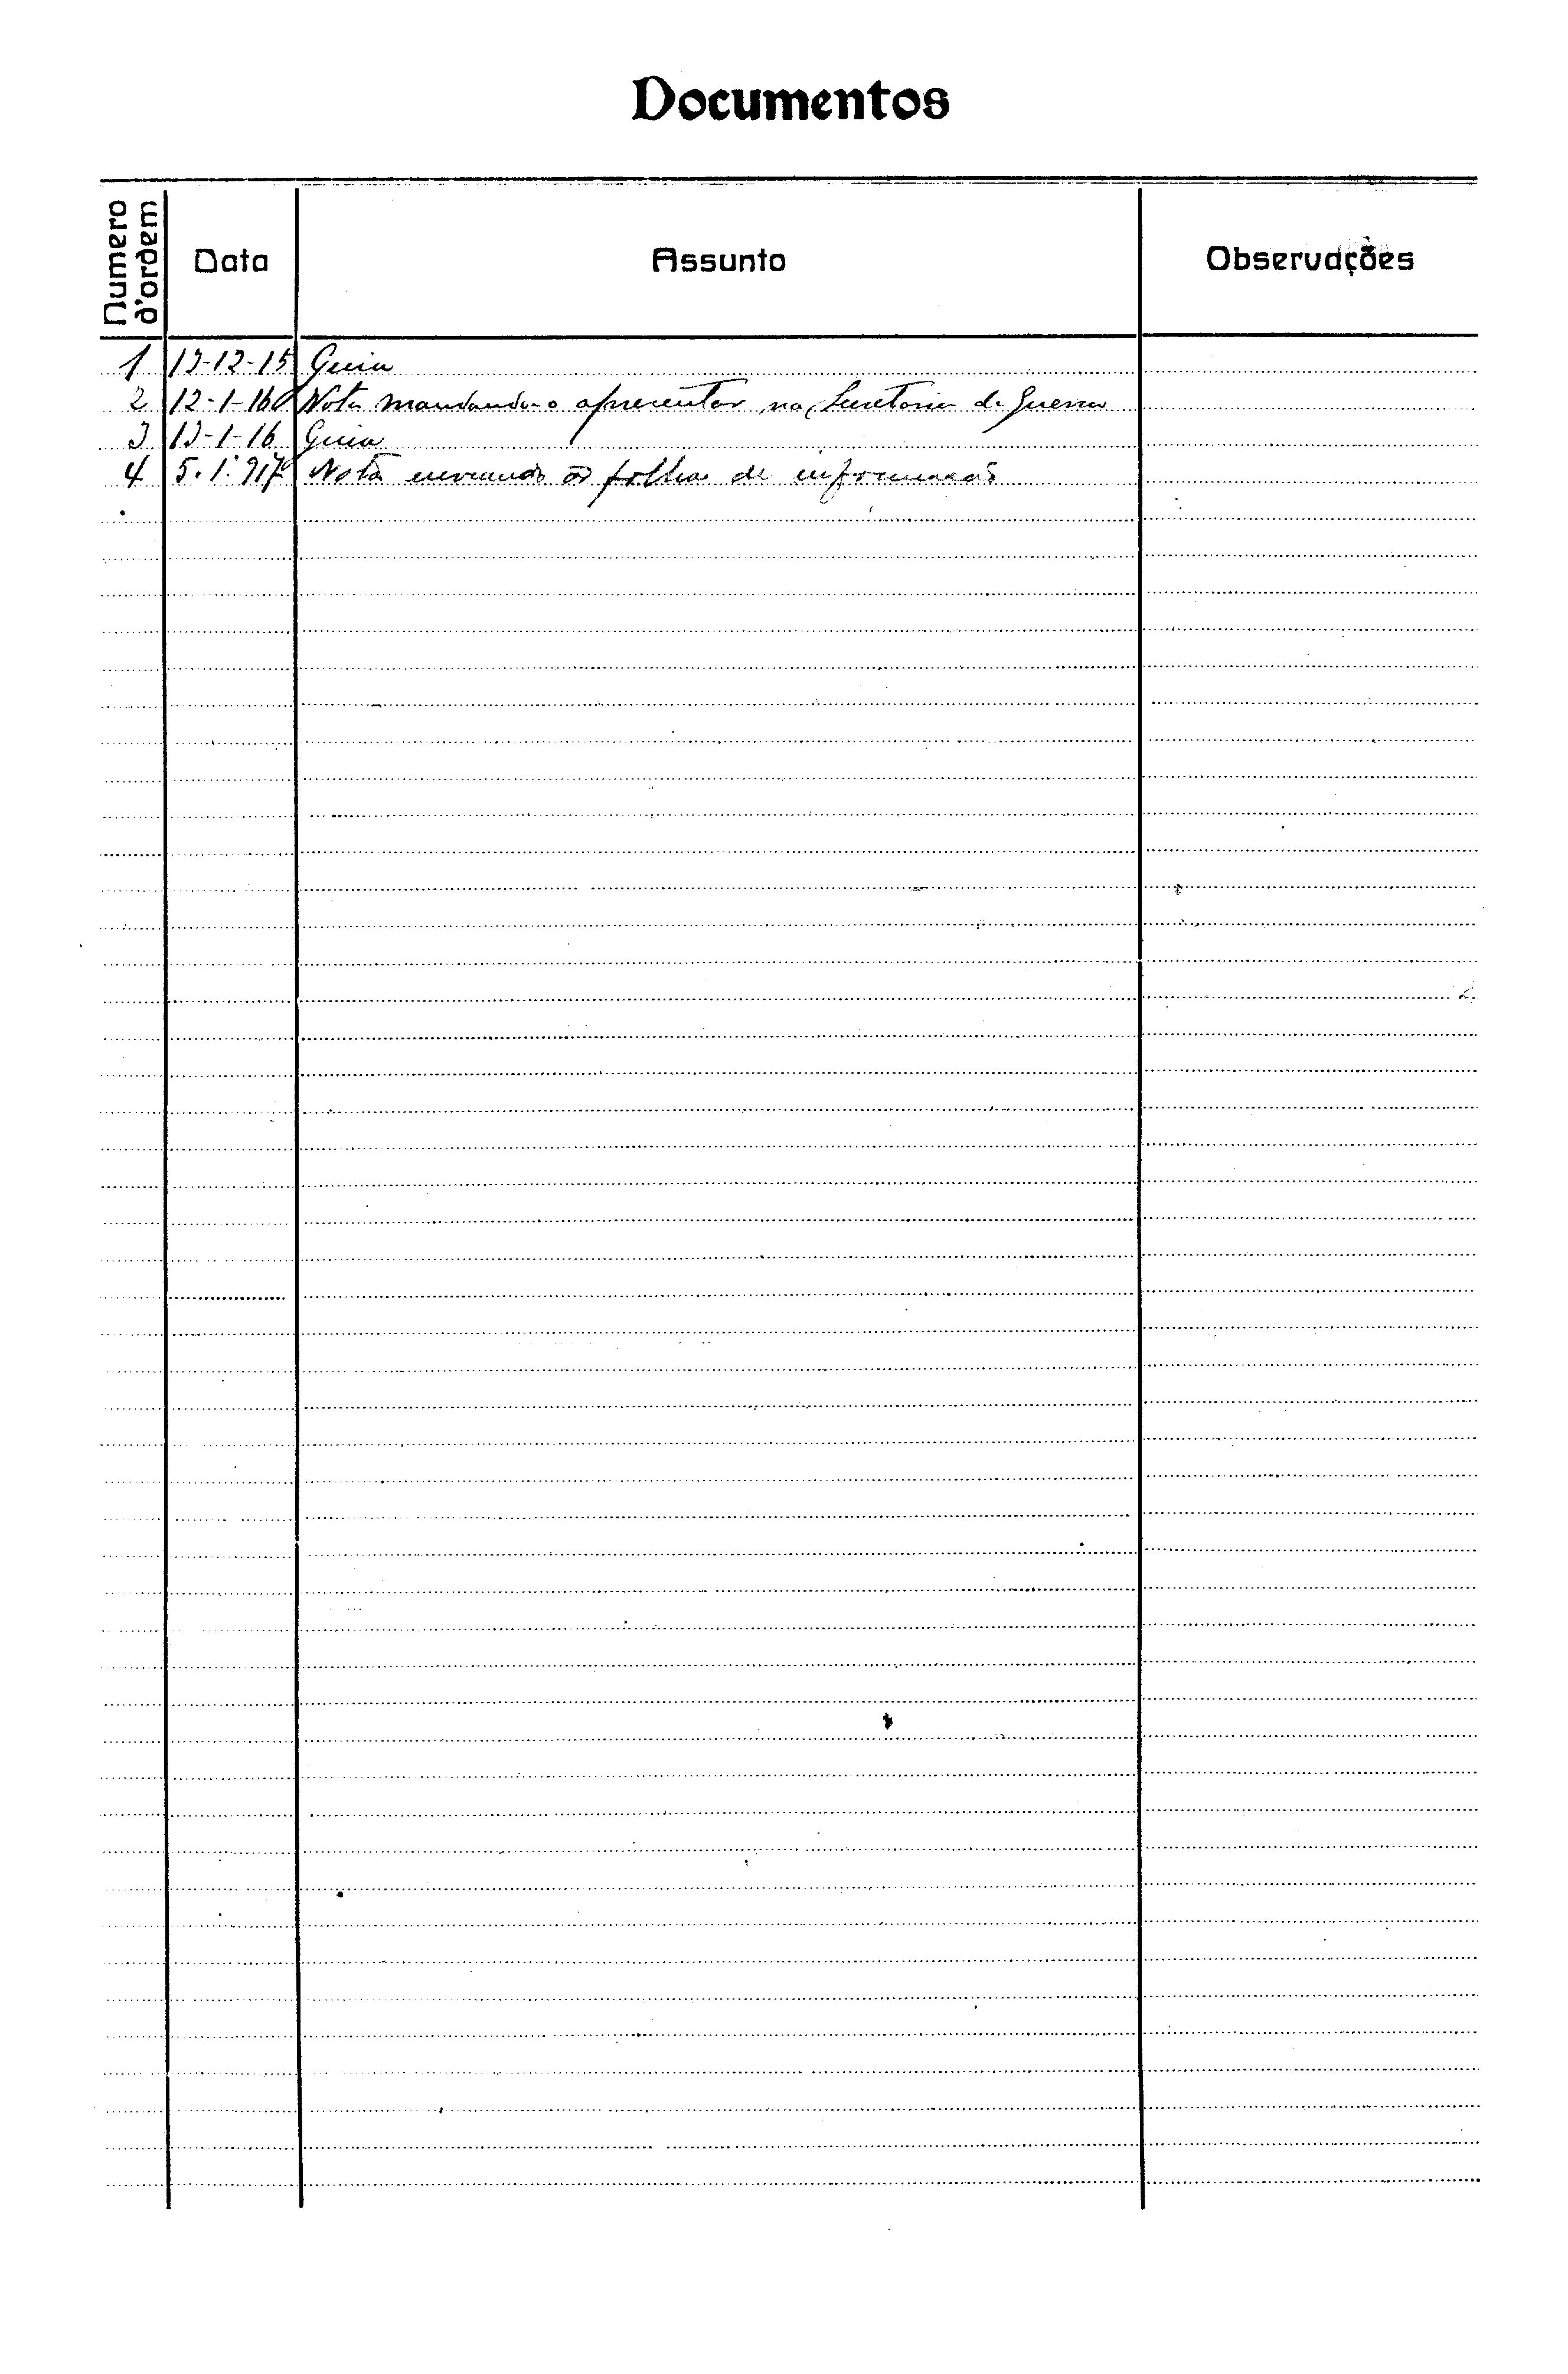 Documentos
Numero d'ordem Data Assunto Observações
1 13-12-15 Guia
2 12-1-16 Nota mandando-o apresentar na Secretaria da Guerra
3 13-1-16 Guia
4 5.1.917 Nota enviando as folhas de informação